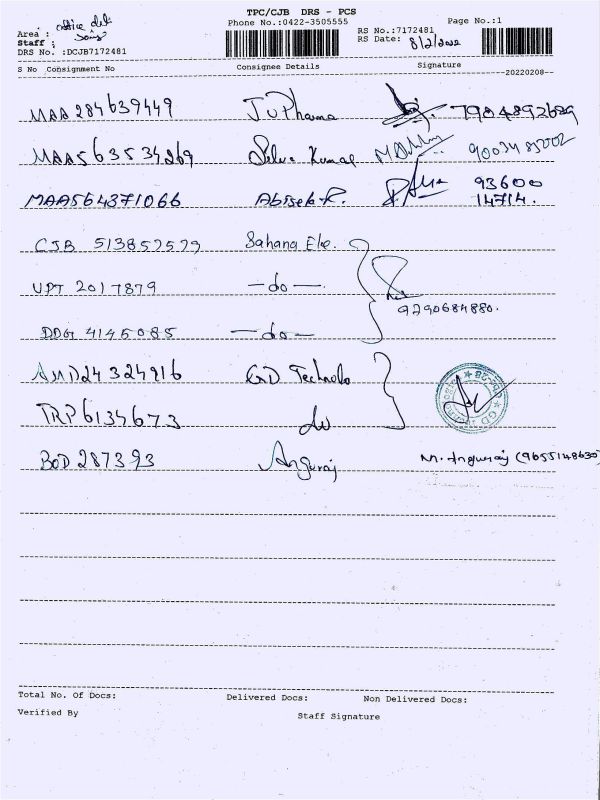 TPC/CJB DRS - PCS
Phone No.:0422-3505555
Page No.:1
Area : office del
Staff :
DRS No. :DCJB7172481
RS No.:7172481
RS Date: 8/2/2022
S No Consignment No Consignee Details Signature
--20220208--
MAA 284639449 JV Pharma
MAA563534269 Selva Kumar 9003485002
MAA564371066 Abisek R. 93600
14714.
CJB 513857579 Sahana Ele.
UPT 2017879 -do-
9290684880.
DDG 4145085 -do-
AMD24324916 GD Technolo
TRP6134673 do
BOD 287393 Anguraj M. Anguraj (9655148630)
Total No. Of Docs: Delivered Docs: Non Delivered Docs:
Verified By Staff Signature